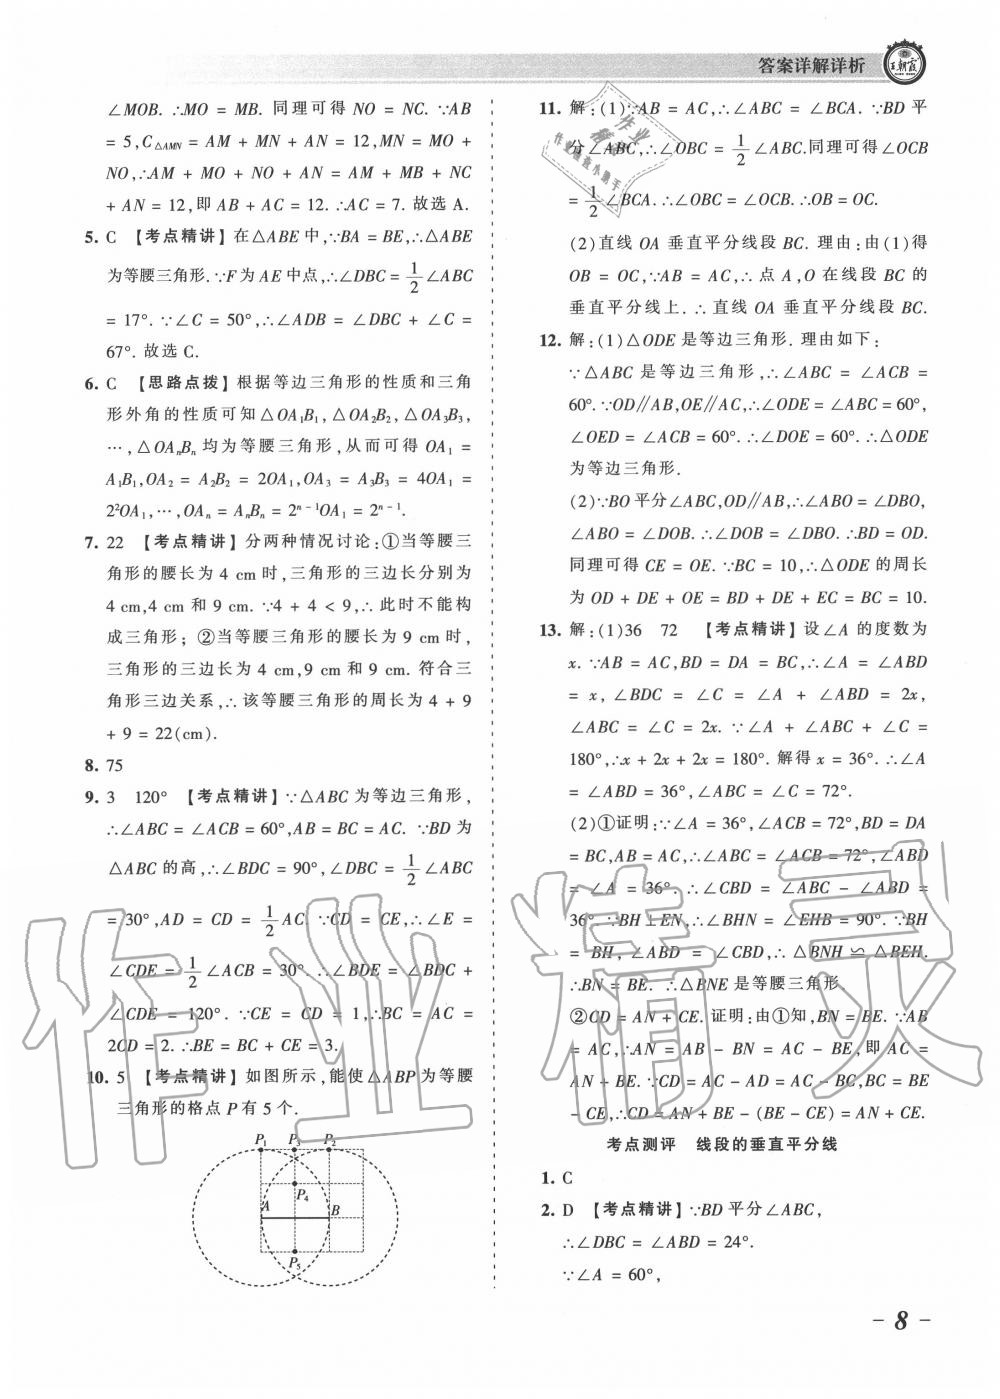 答案详解详析
王朝霞
∠MOB. ∴MO = MB. 同理可得 NO = NC. ∵AB
= 5,C△AMN = AM + MN + AN = 12,MN = MO +
NO,∴AM + MO + NO + AN = AM + MB + NC
+ AN = 12,即 AB + AC = 12. ∴AC = 7. 故选 A.
5. C 【考点精讲】在△ABE 中,∵BA = BE,∴△ABE
为等腰三角形. ∵F 为 AE 中点,∴∠DBC = 1/2 ∠ABC
= 17°. ∵∠C = 50°,∴∠ADB = ∠DBC + ∠C =
67°. 故选 C.
6. C 【思路点拨】根据等边三角形的性质和三角
形外角的性质可知△OA₁B₁,△OA₂B₂,△OA₃B₃,
…,△OAₙBₙ 均为等腰三角形,从而可得 OA₁ =
A₁B₁,OA₂ = A₂B₂ = 2OA₁,OA₃ = A₃B₃ = 4OA₁ =
2²OA₁,…,OAₙ = AₙBₙ = 2ⁿ⁻¹OA₁ = 2ⁿ⁻¹.
7. 22 【考点精讲】分两种情况讨论:①当等腰三
角形的腰长为 4 cm 时,三角形的三边长分别为
4 cm,4 cm 和 9 cm. ∵4 + 4 < 9,∴此时不能构
成三角形; ②当等腰三角形的腰长为 9 cm 时,
三角形的三边长为 4 cm,9 cm 和 9 cm. 符合三
角形三边关系,∴该等腰三角形的周长为 4 + 9
+ 9 = 22(cm).
8. 75
9. 3 120° 【考点精讲】∵△ABC 为等边三角形,
∴∠ABC = ∠ACB = 60°,AB = BC = AC. ∵BD 为
△ABC 的高,∴∠BDC = 90°,∠DBC = 1/2 ∠ABC
= 30°,AD = CD = 1/2 AC. ∵CD = CE,∴∠E =
∠CDE = 1/2 ∠ACB = 30°. ∴∠BDE = ∠BDC +
∠CDE = 120°. ∵CE = CD = 1,∴BC = AC =
2CD = 2. ∴BE = BC + CE = 3.
10. 5 【考点精讲】如图所示,能使△ABP 为等腰
三角形的格点 P 有 5 个.
P₁ P₃ P₂
P₄
A B
P₅
11. 解:(1)∵AB = AC,∴∠ABC = ∠BCA. ∵BD 平
分∠ABC,∴∠OBC = 1/2 ∠ABC.同理可得∠OCB
= 1/2 ∠BCA. ∴∠OBC = ∠OCB. ∴OB = OC.
(2)直线 OA 垂直平分线段 BC. 理由:由(1)得
OB = OC,∵AB = AC,∴点 A,O 在线段 BC 的
垂直平分线上. ∴直线 OA 垂直平分线段 BC.
12. 解:(1)△ODE 是等边三角形. 理由如下:
∵△ABC 是等边三角形,∴∠ABC = ∠ACB =
60°. ∵OD∥AB,OE∥AC,∴∠ODE = ∠ABC = 60°,
∠OED = ∠ACB = 60°. ∴∠DOE = 60°. ∴△ODE
为等边三角形.
(2)∵BO 平分∠ABC,OD∥AB,∴∠ABO = ∠DBO,
∠ABO = ∠DOB. ∴∠DOB = ∠DBO. ∴BD = OD.
同理可得 CE = OE. ∵BC = 10,∴△ODE 的周长
为 OD + DE + OE = BD + DE + EC = BC = 10.
13. 解:(1)36 72 【考点精讲】设∠A 的度数为
x. ∵AB = AC,BD = DA = BC,∴∠A = ∠ABD
= x,∠BDC = ∠C = ∠A + ∠ABD = 2x,
∠ABC = ∠C = 2x. ∵∠A + ∠ABC + ∠C =
180°,∴x + 2x + 2x = 180°. 解得 x = 36°. ∴∠A
= ∠ABD = 36°,∠ABC = ∠C = 72°.
(2)①证明:∵∠A = 36°,∠ACB = 72°,BD = DA
= BC,AB = AC,∴∠ABC = ∠ACB = 72°,∠ABD
= ∠A = 36°. ∴∠CBD = ∠ABC − ∠ABD =
36°. ∵BH⊥EN,∴∠BHN = ∠EHB = 90°. ∵BH
= BH, ∠ABD = ∠CBD,∴△BNH ≌ △BEH.
∴BN = BE. ∴△BNE 是等腰三角形.
②CD = AN + CE. 证明:由①知,BN = BE. ∵AB
= AC,∴AN = AB − BN = AC − BE,即 AC =
AN + BE. ∵CD = AC − AD = AC − BC,BC = BE
− CE,∴CD = AN + BE − (BE − CE) = AN + CE.
考点测评 线段的垂直平分线
1. C
2. D 【考点精讲】∵BD 平分∠ABC,
∴∠DBC = ∠ABD = 24°.
∵∠A = 60°,
- 8 -
作业精灵